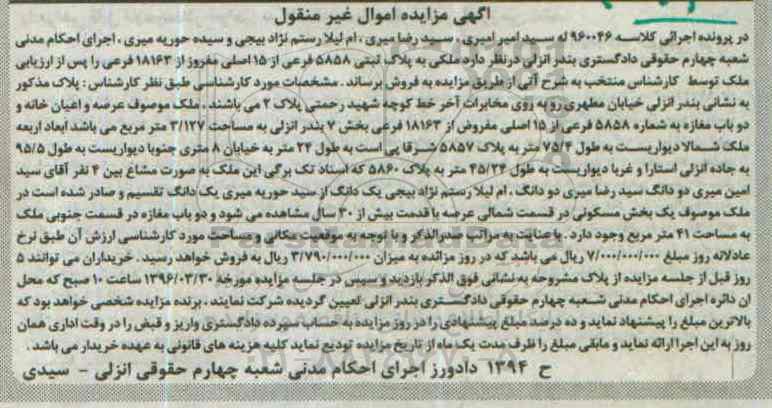 آگهی مزایده اموال غیر منقول
در پرونده اجرائی کلاسه ۹۶۰۰۴۶ له سید امیر امیری ، سید رضا میری ، ام لیلا رستم نژاد بیجی و سیده حوریه میری ، اجرای احکام مدنی
شعبه چهارم حقوقی دادگستری بندر انزلی درنظر دارد ملکی به پلاک ثبتی ۵۸۵۸ فرعی از ۱۵ اصلی مفروز از ۱۸۱۶۳ فرعی را پس از ارزیابی
ملک توسط کارشناس منتخب به شرح آتی از طریق مزایده به فروش برساند . مشخصات مورد کارشناسی طبق نظر کارشناس : پلاک مذکور
به نشانی بندر انزلی خیابان مطهری رو به روی مخابرات آخر خط کوچه شهید رحمتی پلاک ۲ می باشند . ملک موصوف عرصه و اعیان خانه و
دو باب مغازه به شماره ۵۸۵۸ فرعی از ۱۵ اصلی مفروض از ۱۸۱۶۳ فرعی بخش ۷ بندر انزلی به مساحت ۳/۱۲۷ متر مربع می باشد ابعاد اربعه
ملک شمالا دیواریست به طول ۷۵/۴ متر به پلاک ۵۸۵۷ شرقا پی است به طول ۲۴ متر به خیابان ۸ متری جنوبا دیواریست به طول ۹۵/۵
به جاده انزلی استارا و غربا دیواریست به طول ۴۵/۲۴ متر به پلاک ۵۸۶۰ که اسناد تک برگی این ملک به صورت مشاع بین ۴ نفر آقای سید
امین میری دو دانگ سید رضا میری دو دانگ ، ام لیلا رستم نژاد بیجی یک دانگ از سید حوریه میری یک دانگ تقسیم و صادر شده است در
ملک موصوف یک بخش مسکونی در قسمت شمالی عرصه با قدمت بیش از ۳۰ سال مشاهده می شود و دو باب مغازه در قسمت جنوبی ملک
به مساحت ۴۱ متر مربع وجود دارد . با عنایت به مراتب صدرالذکر و با توجه به موقعیت مکانی و مساحت مورد کارشناسی ارزش آن طبق نرخ
عادلانه روز مبلغ ۷/۰۰۰/۰۰۰/۰۰۰ ریال می باشد که در روز مزائده به میزان ۳/۷۹۰/۰۰۰/۰۰۰ ریال به فروش خواهد رسید . خریداران می توانند ۵
روز قبل از جلسه مزایده از پلاک مشروحه به نشانی فوق الذکر بازدید و سپس در جلسه مزایده مورخه ۱۳۹۶/۰۳/۳۰ ساعت ۱۰ صبح که محل
ان دائره اجرای احکام مدنی شعبه چهارم حقوقی دادگستری بندر انزلی تعیین گردیده شرکت نمایند . برنده مزایده شخصی خواهد بود که
بالاترین مبلغ را پیشنهاد نماید و ده درصد مبلغ پیشنهادی را در روز مزایده به حساب سپرده دادگستری واریز و قبض را در وقت اداری همان
روز به این اجرا ارائه نماید و مابقی مبلغ را ظرف مدت یک ماه از تاریخ مزایده تودیع نماید کلیه هزینه های قانونی به عهده خریدار می باشد .
ح ۱۳۹۴ دادورز اجرای احکام مدنی شعبه چهارم حقوقی انزلی - سیدی